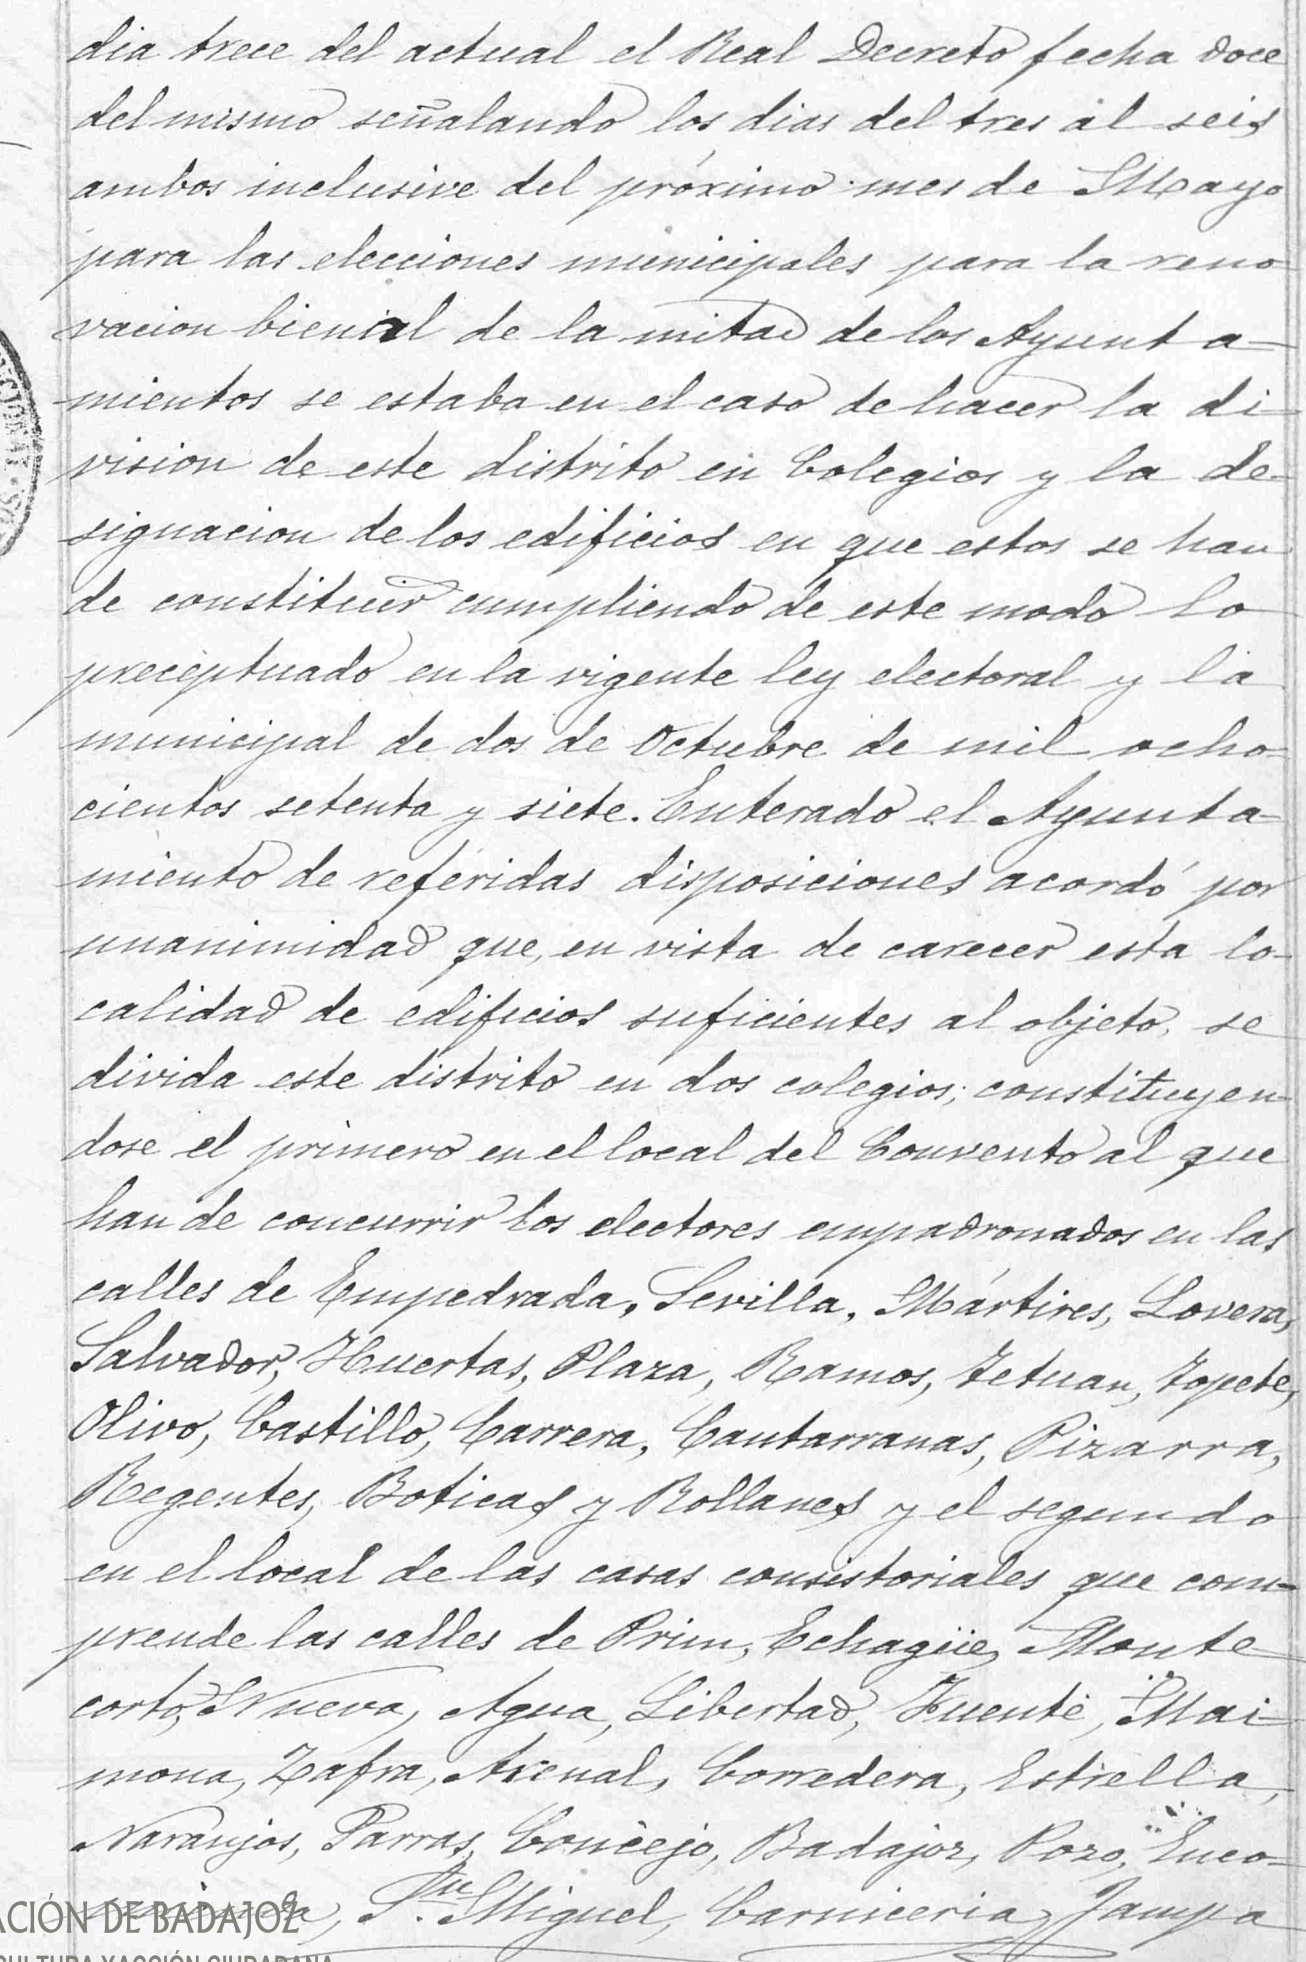 dia trece del actual el Real Decreto fecha doce
del mismo señalando los dias del tres al seis
ambos inclusive del próximo mes de Mayo
para las elecciones municipales para la reno
vacion bienial de la mitad de los Ayunta-
mientos se estaba en el caso de hacer la di-
vision de este distrito en Colegios y la de-
signacion de los edificios en que estos se han
de constituir cumpliendo de este modo lo
preceptuado en la vigente ley electoral y la
municipal de dos de Octubre de mil ocho-
cientos setenta y siete. Enterado el Ayunta-
miento de referidas disposiciones acordó por
unanimidad que, en vista de carecer esta lo-
calidad de edificios suficientes al objeto, se
divida este distrito en dos colegios; constituyen-
dose el primero en el local del Convento al que
han de concurrir los electores empadronados en las
calles de Empedrada, Sevilla, Mártires, Lovera,
Salvador, Huertas, Plaza, Ramos, Tetuan, Topete,
Olivo, Castillo, Carrera, Cantarranas, Pizarra,
Regentes, Boticas y Rollanes y el segundo
en el local de las casas consistoriales que com-
prende las calles de Prim, Echagüe, Monte
corto, Nueva, Agua, Libertad, Fuente, Mai-
mona, Zafra, Arenal, Corredera, Estrella,
Naranjos, Parras, Concejo, Badajoz, Pozo, Enco-
mienda, Sn. Miguel, Carniceria, Jampa
ACIÓN DE BADAJOZ
CULTURA Y ACCIÓN CIUDADANA